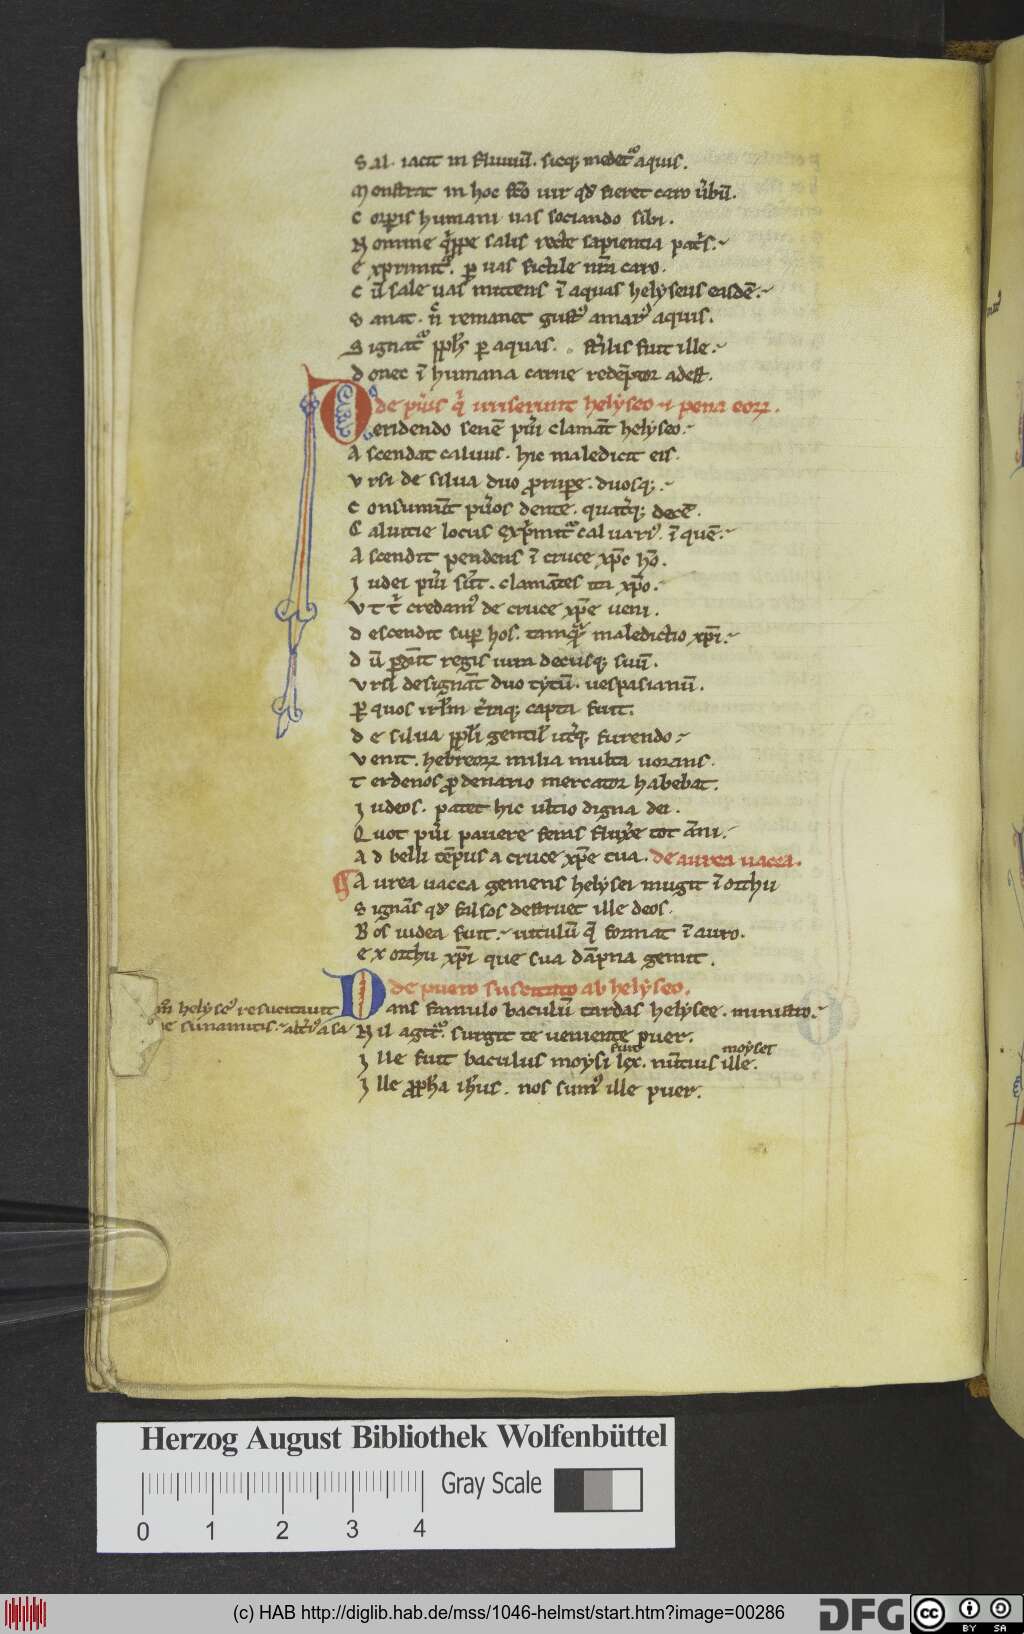 Sal. iacit in fluuiū. sicq; medet᷑ aquis.
Monstrat in hoc fcō uir qd̄ fieret caro u̓bū.
Corp̄is humani uas sociando sibi.
Nomine q̇ppe salis recte sapientia pat̓s.
Exprimit᷑. p̱ uas fictile nr̄a caro.
Cū sale uas mittens ī aquas helyseus easdē.
Sanat. n̄ remanet gustꝰ amarꝰ aquis.
Signat᷑ pph̄s p̱ aquas. st̓ilis fuit ille.
Donec ī humana carne redēptor adest.
de pu̓is q̇ irriserunt helyseo ⁊ pena eoꝝ.
Deridendo senē pu̓i clamāt helyseo.
Ascendat caluus. hic maledicit eis.
Vrsi de silua duo prorup̱e. duosq;.
Consumūt pu̓os dente. quat̓q; decē.
Caluitie locus exp̓mit᷑ caluarꝰ. ī quē.
Ascendit pendens ī cruce xp̄c hō.
Iudei pu̓i st̄. clamātes ita xp̄o.
Vt t̓ credamꝰ de cruce xp̄e ueni.
Descendit sup̱ hos. tamq̄ maledictio xp̄i.
Dū p̱dūt regis iura decusq; suū.
Vrsi designāt duo tytū. uespasianū.
P̱ quos irl̄m t̓raq; capta fuit.
De silua ppl̄i gentil̓ ut̓q; furendo
Venit. hebreoꝝ milia multa uorans.
Terdenos pro denario mercator habebat.
Iudeos. patet hic ultio digna dei.
Quot pu̓i pauere feras fluxe̓ tot āni.
Ad belli tēpus a cruce xp̄e tua. de aurea uacca.
Aurea uacca gemens helysei mugit ī orthu
Signās qd̄ falsos destruet ille deos.
Bos iudea fuit. uitulū q̄ format ī auro.
Ex orthu xp̄i que sua dāpna gemit.
de puero suscitato ab helyseo.
Dans famulo baculū tardas helysee. ministro.
Nil agit᷑. surgit te ueniente puer.
Ille fuit baculus moysi lex. nūtius ille.
fuit moyses
Ille proph̄a ih̄us. nos sumꝰ ille puer.
helyseꝰ resucitauit
sunamitis.
Herzog August Bibliothek Wolfenbüttel
Gray Scale
0 1 2 3 4
(c) HAB http://diglib.hab.de/mss/1046-helmst/start.htm?image=00286
DFG
cc BY SA